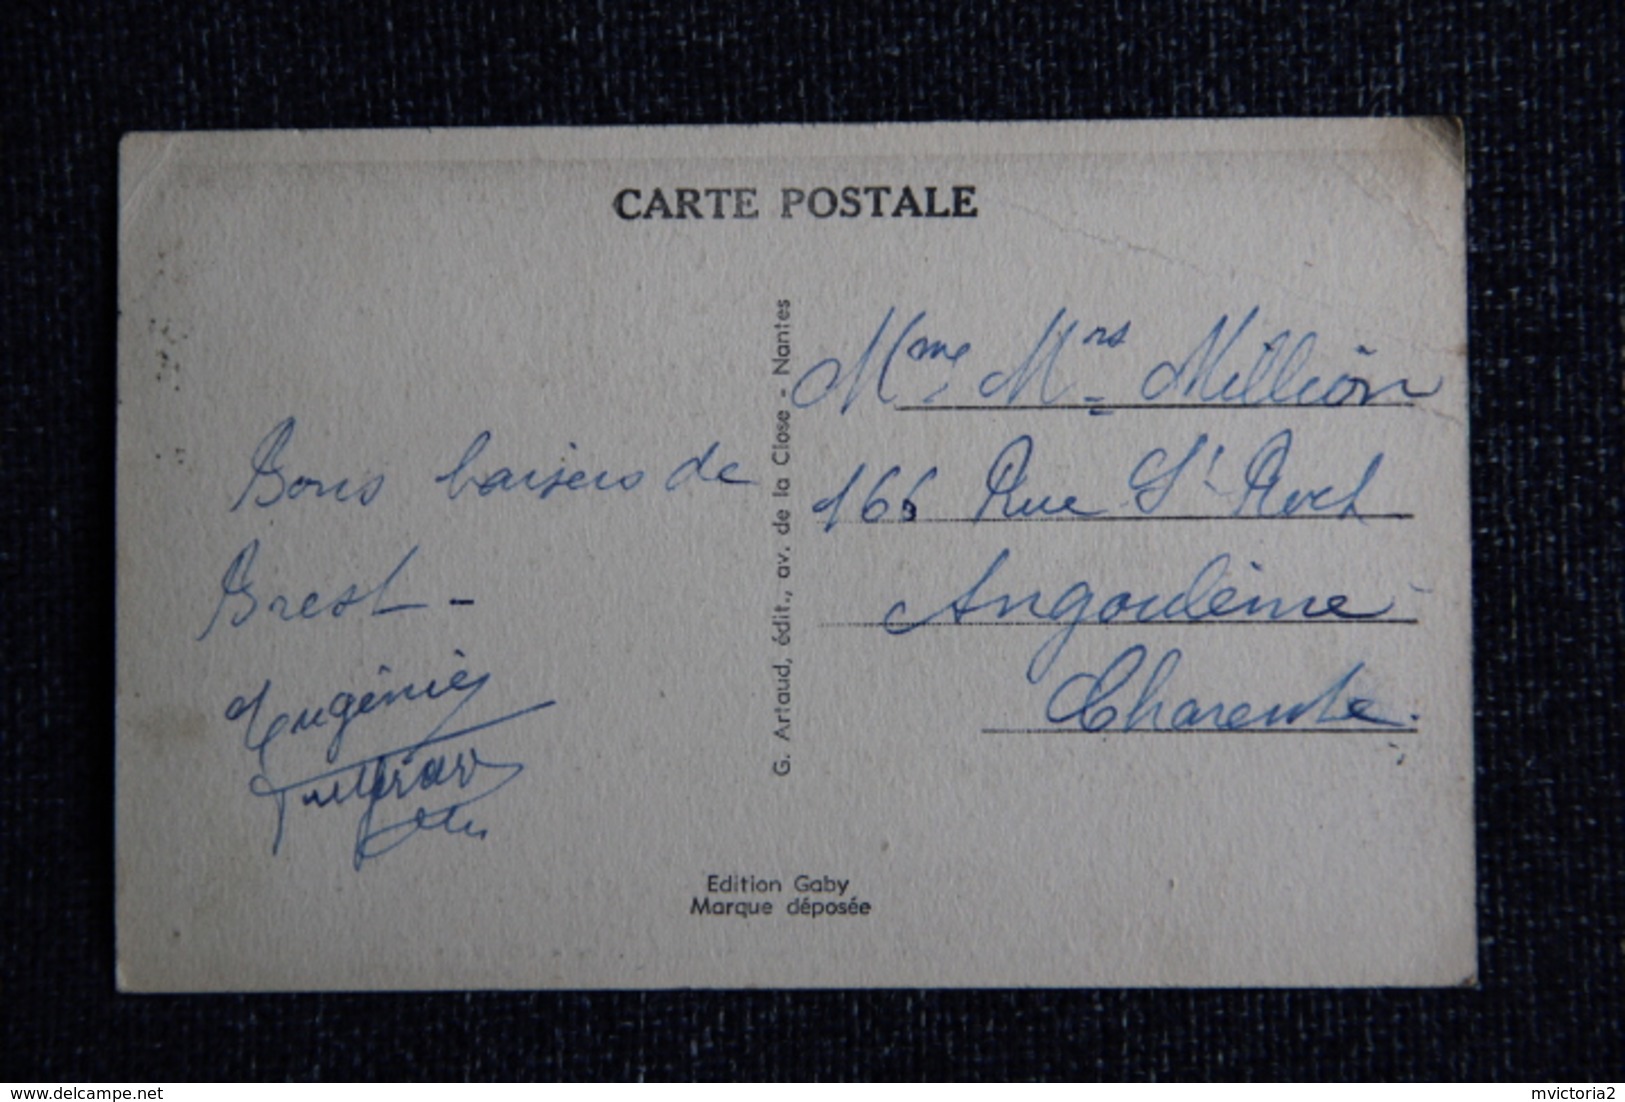 CARTE POSTALE
Bons baisers de
Brest -
Eugénie
G. Artaud, édit., av. de la Close - Nantes
Mme Mrs Million
166 Rue St Roch
Angoulême
Charente.
Edition Gaby
Marque déposée
www.delcampe.net
mvictoria2